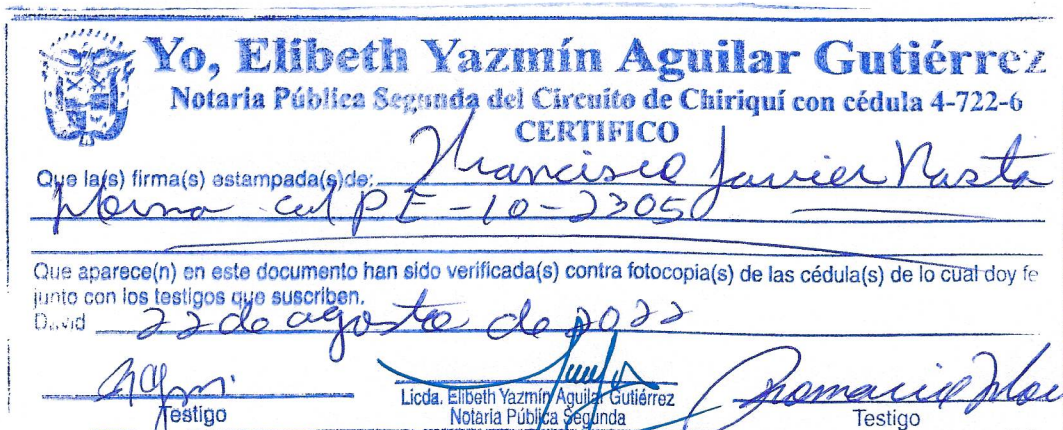 Yo, Elibeth Yazmín Aguilar Gutiérrez
Notaria Pública Segunda del Circuito de Chiriquí con cédula 4-722-6
CERTIFICO
Que la(s) firma(s) estampada(s)de: Francisco Javier
PE-10-2305
Que aparece(n) en este documento han sido verificada(s) contra fotocopia(s) de las cédula(s) de lo cual doy fe
junto con los testigos que suscriben.
David 22 de agosto de 2022
Testigo
Licda. Elibeth Yazmín Aguilar Gutiérrez
Notaria Pública Segunda
Testigo